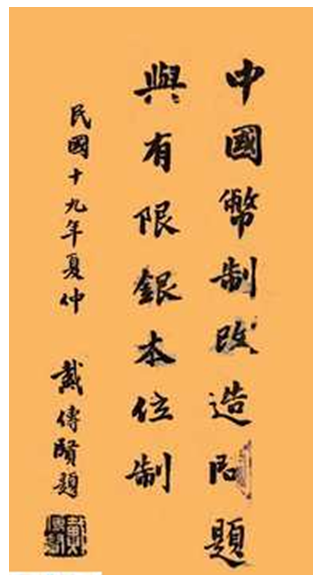 中國幣制改造問題
與有限銀本位制
民國十九年夏仲 戴傳賢題